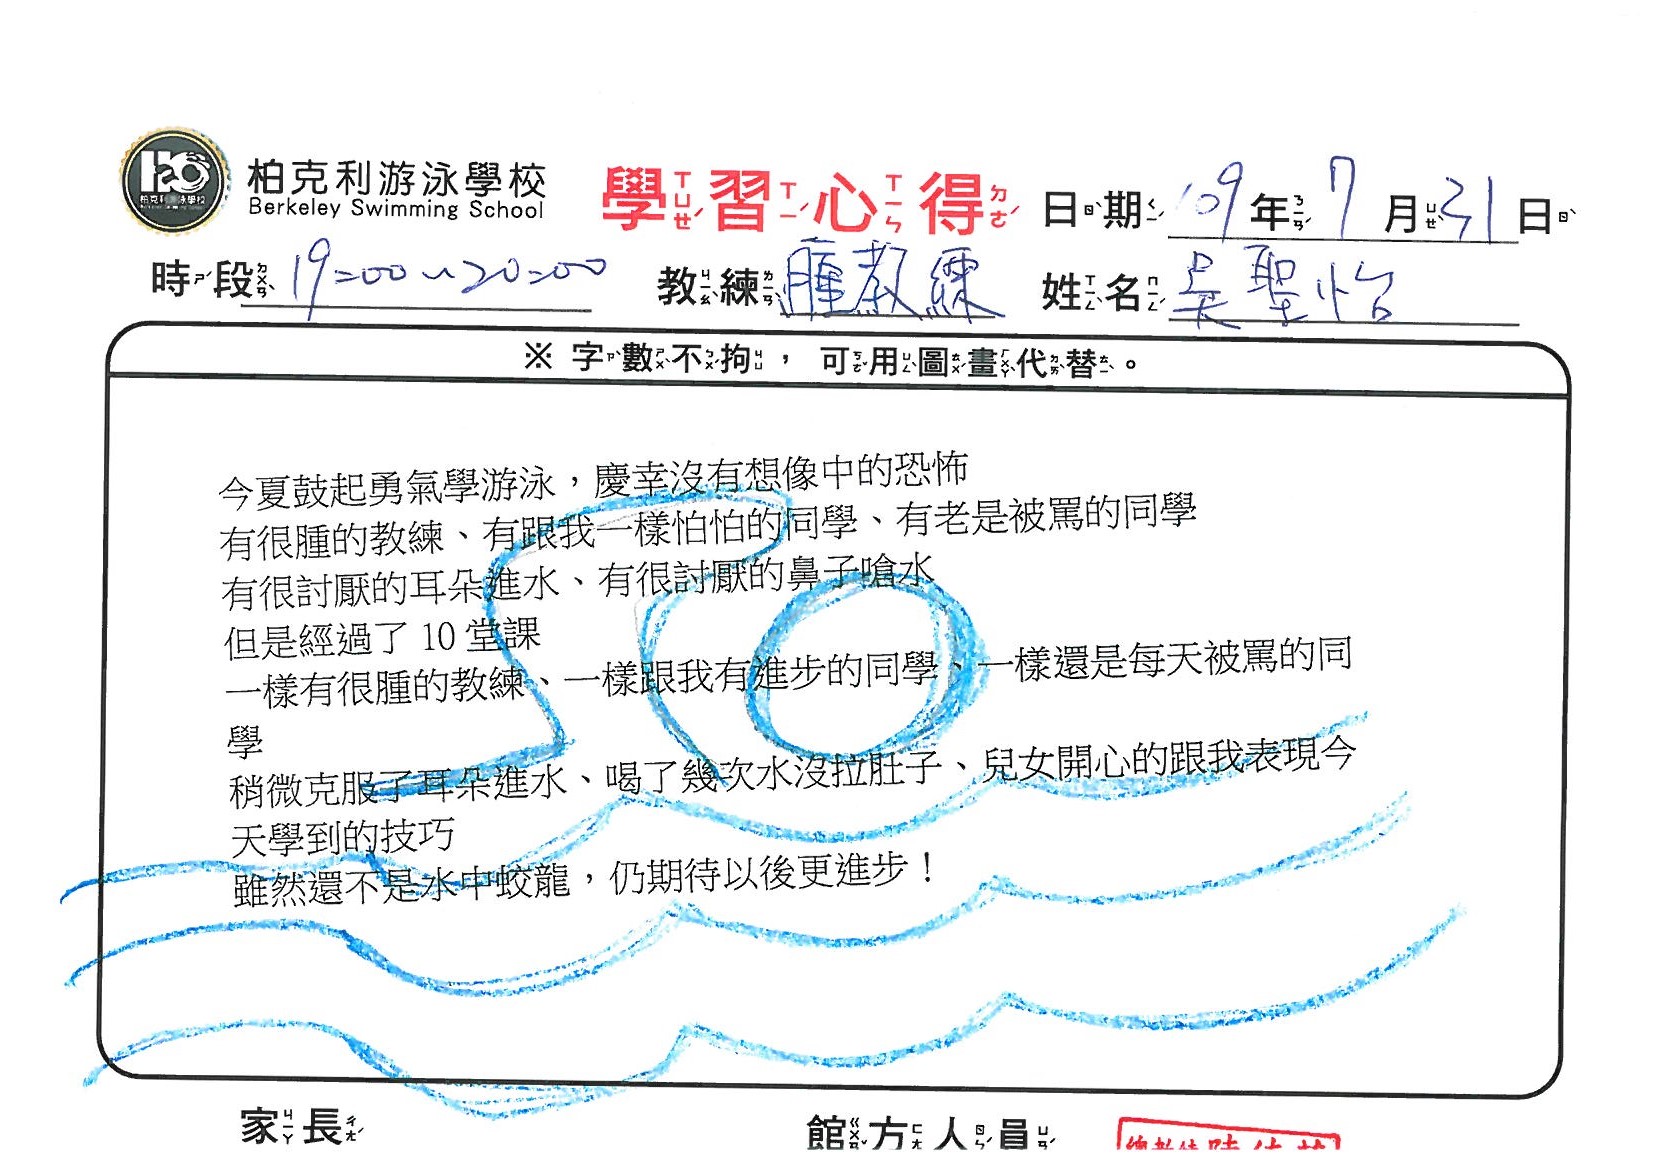 柏克利游泳學校
Berkeley Swimming School
學習心得
日期 109年 7月 31日
時段 19:00~20:00 教練 腫教練 姓名 吳聖怡
※ 字數不拘，可用圖畫代替。
今夏鼓起勇氣學游泳，慶幸沒有想像中的恐怖
有很腫的教練、有跟我一樣怕怕的同學、有老是被罵的同學
有很討厭的耳朵進水、有很討厭的鼻子嗆水
但是經過了 10 堂課
一樣有很腫的教練、一樣跟我有進步的同學、一樣還是每天被罵的同
學
稍微克服了耳朵進水、喝了幾次水沒拉肚子、兒女開心的跟我表現今
天學到的技巧
雖然還不是水中蛟龍，仍期待以後更進步！
家長 館方人員